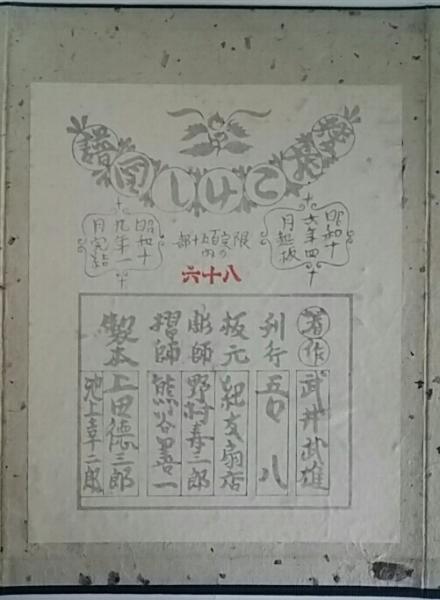 愛蔵こけし図譜
昭和十
六年四
月起板
限定百五十部
の内
昭和十
九年一
月完結
八十六
著作 武井武雄
刊行 吾八
板元 紀友扇店
彫師 野村春三郎
摺師 熊谷善一
製本 上田徳三郎
池上幸二郎